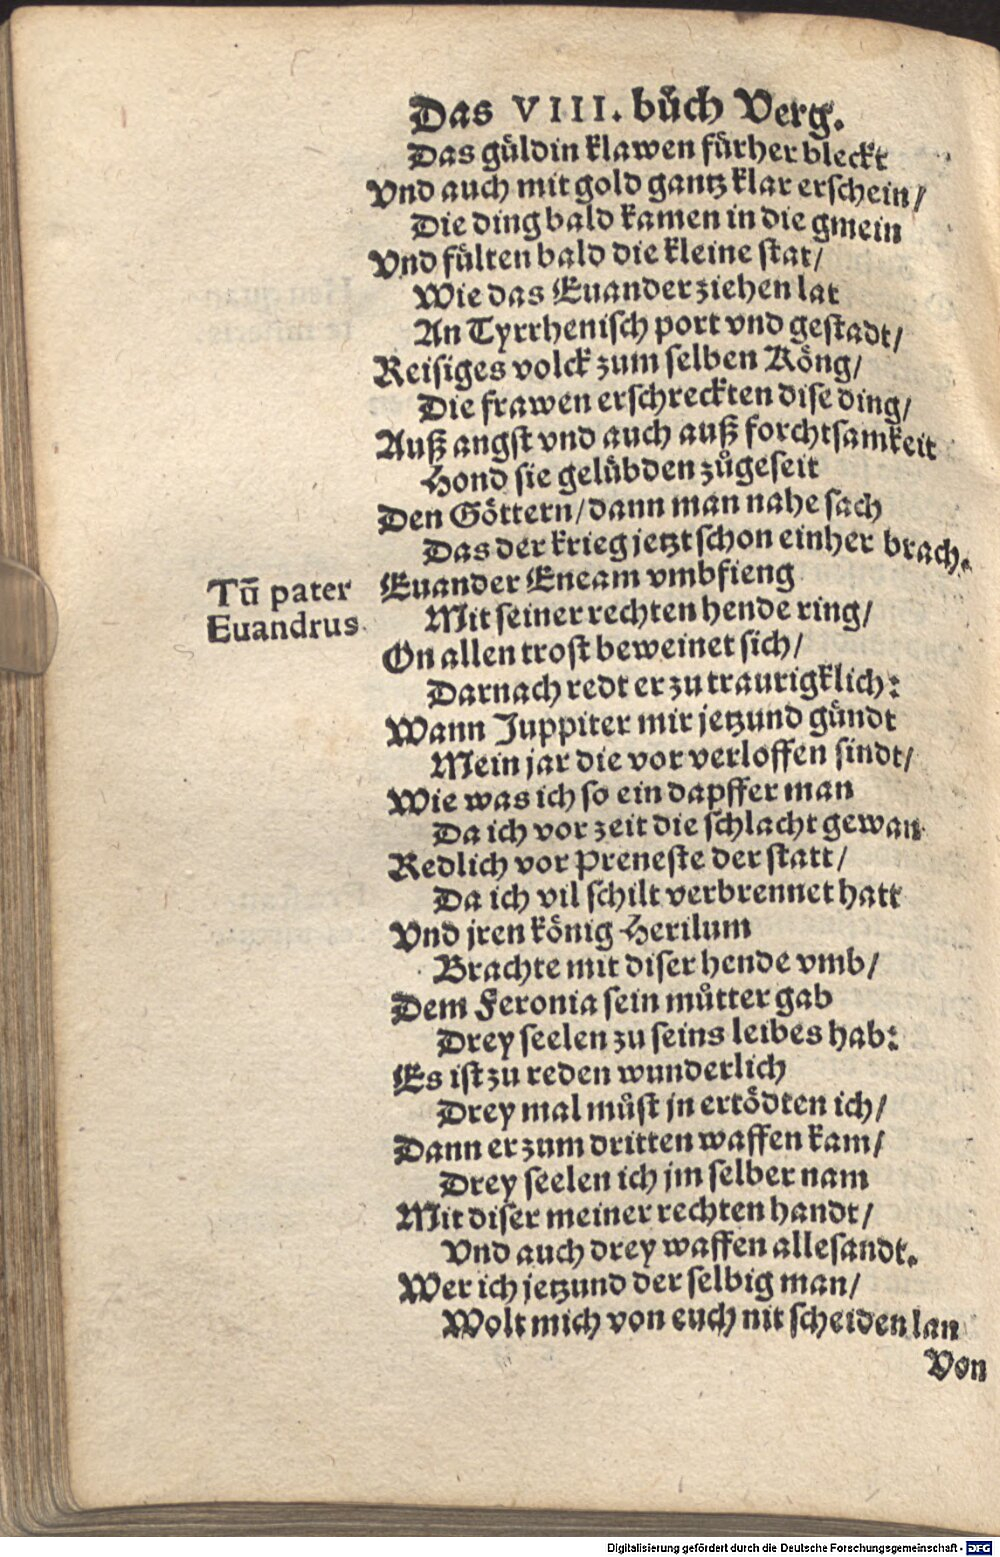 Das VIII. bůch Verg.
Das güldin klawen fürher bleckt
Vnd auch mit gold gantz klar erschein/
Die ding bald kamen in die gmein
Vnd fülten bald die kleine stat/
Wie das Euander ziehen lat
An Tyrrhenisch port vnd gestadt/
Reisiges volck zum selben Köng/
Die frawen erschreckten dise ding/
Auß angst vnd auch auß forchtsamkeit
Hond sie gelübden zůgeseit
Den Göttern/dann man nahe sach
Das der krieg jetzt schon einher brach.
Tū pater
Euandrus
Euander Eneam vmbfieng
Mit seiner rechten hende ring/
On allen trost beweinet sich/
Darnach redt er zu traurigklich:
Wann Juppiter mir jetzund gündt
Mein jar die vor verloffen sindt/
Wie was ich so ein dapffer man
Da ich vor zeit die schlacht gewan
Redlich vor Preneste der statt/
Da ich vil schilt verbrennet hatt
Vnd jren könig Herilum
Brachte mit diser hende vmb/
Dem Feronia sein můtter gab
Drey seelen zu seins leibes hab:
Es ist zu reden wunderlich
Drey mal můst jn ertödten ich/
Dann er zum dritten waffen kam/
Drey seelen ich jm selber nam
Mit diser meiner rechten handt/
Vnd auch drey waffen allesandt.
Wer ich jetzund der selbig man/
Wolt mich von euch nit scheiden lan
Von
Digitalisierung gefördert durch die Deutsche Forschungsgemeinschaft - DFG